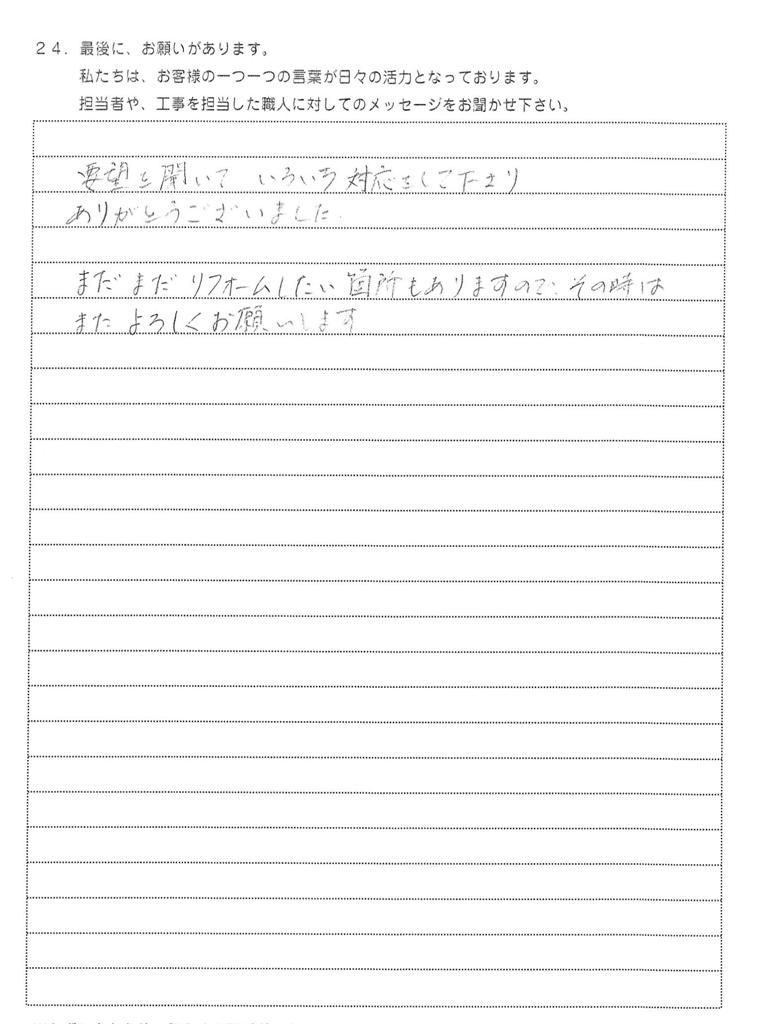 ２４．最後に、お願いがあります。
私たちは、お客様の一つ一つの言葉が日々の活力となっております。
担当者や、工事を担当した職人に対してのメッセージをお聞かせ下さい。
要望を聞いて いろいろ対応をして下さり
ありがとうございました.
まだまだリフォームしたい箇所もありますので、その時は
またよろしくお願いします